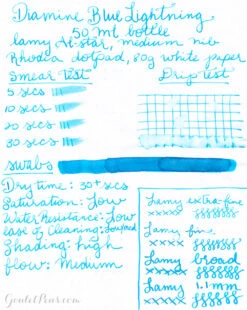 Diamine Blue Lightning
50 ml bottle
Lamy Al-star, medium nib
Rhodia dotpad, 80g white paper
Smear Test
Drip Test
5 secs
10 secs
20 secs
30 secs
swabs
Dry time: 30+ secs
Saturation: Low
Water Resistance: Low
ease of Cleaning:
Shading: high
flow: Medium
Lamy extra-fine
Lamy fine
Lamy broad
Lamy 1.1mm
GouletPens.com